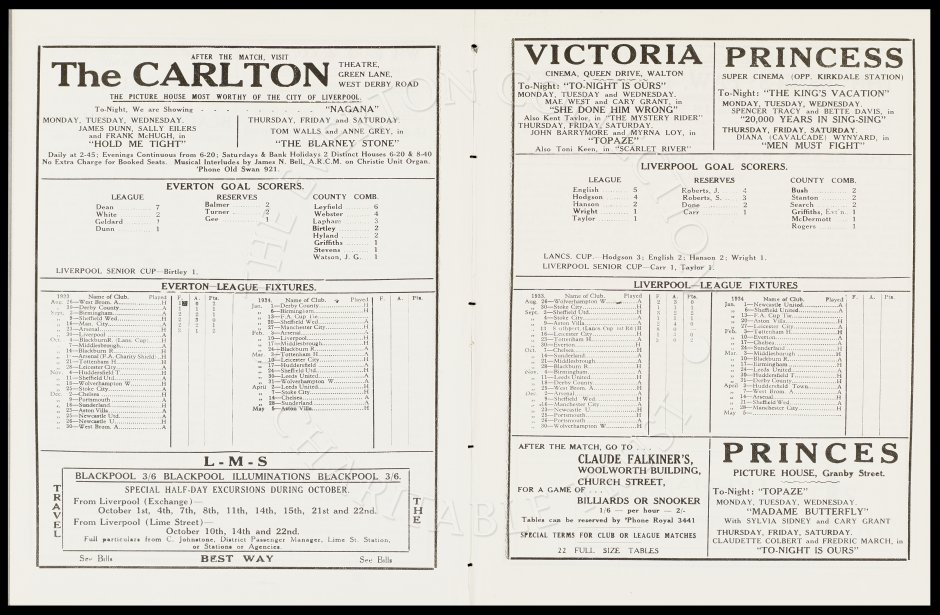 AFTER THE MATCH, VISIT
The CARLTON
THEATRE,
GREEN LANE,
WEST DERBY ROAD
THE PICTURE HOUSE MOST WORTHY OF THE CITY OF LIVERPOOL.
To-Night, We are Showing - - - - "NAGANA"
MONDAY, TUESDAY, WEDNESDAY.
JAMES DUNN, SALLY EILERS
and FRANK McHUGH, in
"HOLD ME TIGHT"
THURSDAY, FRIDAY and SATURDAY.
TOM WALLS and ANNE GREY, in
"THE BLARNEY STONE"
Daily at 2-45; Evenings Continuous from 6-20; Saturdays & Bank Holidays 2 Distinct Houses 6-20 & 8-40
No Extra Charge for Booked Seats. Musical Interludes by James N. Bell, A.R.C.M. on Christie Unit Organ.
'Phone Old Swan 921.
EVERTON GOAL SCORERS.
LEAGUE
Dean ........ 7
White ........ 2
Geldard ........
Dunn ........ 1
RESERVES
Balmer ........ 2
Turner ........ 2
Gee ........ 1
COUNTY COMB.
Leyfield ........ 6
Webster ........ 4
Lapham ........ 3
Birtley ........ 2
Hyland ........ 2
Griffiths ........ 1
Stevens ........ 1
Watson, J. G. ........ 1
LIVERPOOL SENIOR CUP—Birtley 1.
EVERTON LEAGUE FIXTURES.
1933. Name of Club. Played F. A. Pts.
Aug. 26—West Brom. A. H
„ —Derby County
Sept. 2—Birmingham
„ —Sheffield Wed.
„ 16—Man. City
„ —Arsenal
Oct. —Blackburn R. (Lans. Cup)
„ —Middlesbrough
„ 14—Blackburn R.
„ —Arsenal (F.A. Charity Shield)
„ 21—Tottenham H.
„ 28—Leicester City
Nov. —Huddersfield T.
„ —Sheffield Utd.
„ 18—Wolverhampton W.
„ 25—Stoke City
Dec. 2—Chelsea
„ 9—Portsmouth
„ 16—Sunderland
„ 23—Aston Villa
„ 25—Newcastle Utd.
„ 26—Newcastle U.
„ 30—West Brom. A.
1934. Name of Club. Played F. A. Pts.
Jan. 1—Derby County
„ 6—Birmingham
„ 13—F.A. Cup Tie
„ 20—Sheffield Wed.
„ 27—Manchester City
Feb. 3—Arsenal
„ 10—Liverpool
„ 17—Middlesbrough
„ 24—Blackburn R.
Mar. 3—Tottenham H.
„ 10—Leicester City
„ 17—Huddersfield
„ 24—Sheffield Utd.
„ 30—Liverpool
„ 31—Wolverhampton W.
April 2—Leeds United
„ 7—Stoke City
„ 14—Chelsea
„ 28—Sunderland
May 5—Aston Villa
L-M-S
BLACKPOOL 3/6 BLACKPOOL ILLUMINATIONS BLACKPOOL 3/6.
TRAVEL
THE
SPECIAL HALF-DAY EXCURSIONS DURING OCTOBER.
From Liverpool (Exchange)—
October 1st, 4th, 7th, 8th, 11th, 14th, 15th, 21st and 22nd.
From Liverpool (Lime Street)—
October 10th, 14th and 22nd.
Full particulars from C. Johnstone, District Passenger Manager, Lime St. Station,
or Stations or Agencies.
See Bills BEST WAY See Bills
VICTORIA
CINEMA, QUEEN DRIVE, WALTON
To-Night: "TO-NIGHT IS OURS"
MONDAY, TUESDAY and WEDNESDAY.
MAE WEST and CARY GRANT, in
"SHE DONE HIM WRONG"
Also Kent Taylor, in "THE MYSTERY RIDER"
THURSDAY, FRIDAY, SATURDAY.
JOHN BARRYMORE and MYRNA LOY, in
"TOPAZE"
Also Toni Keen, in "SCARLET RIVER"
PRINCESS
SUPER CINEMA (OPP. KIRKDALE STATION)
To-Night: "THE KING'S VACATION"
MONDAY, TUESDAY, WEDNESDAY.
SPENCER TRACY and BETTE DAVIS, in
"20,000 YEARS IN SING-SING"
THURSDAY, FRIDAY, SATURDAY.
DIANA (CAVALCADE) WYNYARD, in
"MEN MUST FIGHT"
LIVERPOOL GOAL SCORERS.
LEAGUE
English ........ 5
Hodgson ........ 4
Hanson ........ 2
Wright ........ 1
Taylor ........ 1
RESERVES
Roberts, J. ........ 4
Roberts, S. ........ 3
Done ........ 2
Carr ........ 1
COUNTY COMB.
Bush ........ 2
Stanton ........ 2
Search ........ 2
Griffiths, Ext'n. ........ 1
McDermott ........ 1
Rogers ........ 1
LANCS. CUP.—Hodgson 3; English 2; Hanson 2; Wright 1.
LIVERPOOL SENIOR CUP—Carr 1, Taylor 1.
LIVERPOOL LEAGUE FIXTURES
1933. Name of Club. Played F. A. Pts.
Aug. 26—Wolverhampton W.
„ 30—Stoke City
Sept. 2—Sheffield Utd.
„ —Stoke City
„ 9—Aston Villa
„ 16—Leicester City
„ 23—Tottenham H.
„ 30—Everton
Oct. 7—Chelsea
„ 14—Sunderland
„ 21—Middlesbrough
„ 28—Blackburn R.
Nov. 4—Birmingham
„ 11—Leeds United
„ 18—Derby County
„ 25—West Brom. A.
Dec. 2—Arsenal
„ 9—Sheffield Wed.
„ 16—Manchester City
„ 23—Newcastle U.
„ 25—Portsmouth
„ 26—Portsmouth
„ 30—Wolverhampton W.
1934 Name of Club. Played F. A. Pts.
Jan. 1—Newcastle United
„ 6—Sheffield United
„ —F.A. Cup Tie
„ 20—Aston Villa
„ 27—Leicester City
Feb. 3—Tottenham H.
„ 10—Everton
„ 17—Chelsea
„ 24—Sunderland
Mar. 3—Middlesbrough
„ 10—Blackburn R.
„ 17—Birmingham
„ 24—Leeds United
„ 30—Huddersfield T.
„ 31—Derby County
April 2—Huddersfield Town
„ 7—West Brom A.
„ 14—Arsenal
„ 21—Sheffield Wed.
„ 28—Manchester City
May
AFTER THE MATCH, GO TO
CLAUDE FALKINER'S,
WOOLWORTH BUILDING,
CHURCH STREET,
FOR A GAME OF . . .
BILLIARDS OR SNOOKER
1/6 — per hour — 2/-
Tables can be reserved by 'Phone Royal 3441
SPECIAL TERMS FOR CLUB OR LEAGUE MATCHES
22 FULL SIZE TABLES
PRINCES
PICTURE HOUSE, Granby Street.
To-Night: "TOPAZE"
MONDAY, TUESDAY, WEDNESDAY
"MADAME BUTTERFLY"
With SYLVIA SIDNEY and CARY GRANT
THURSDAY, FRIDAY, SATURDAY.
CLAUDETTE COLBERT and FREDRIC MARCH, in
"TO-NIGHT IS OURS"